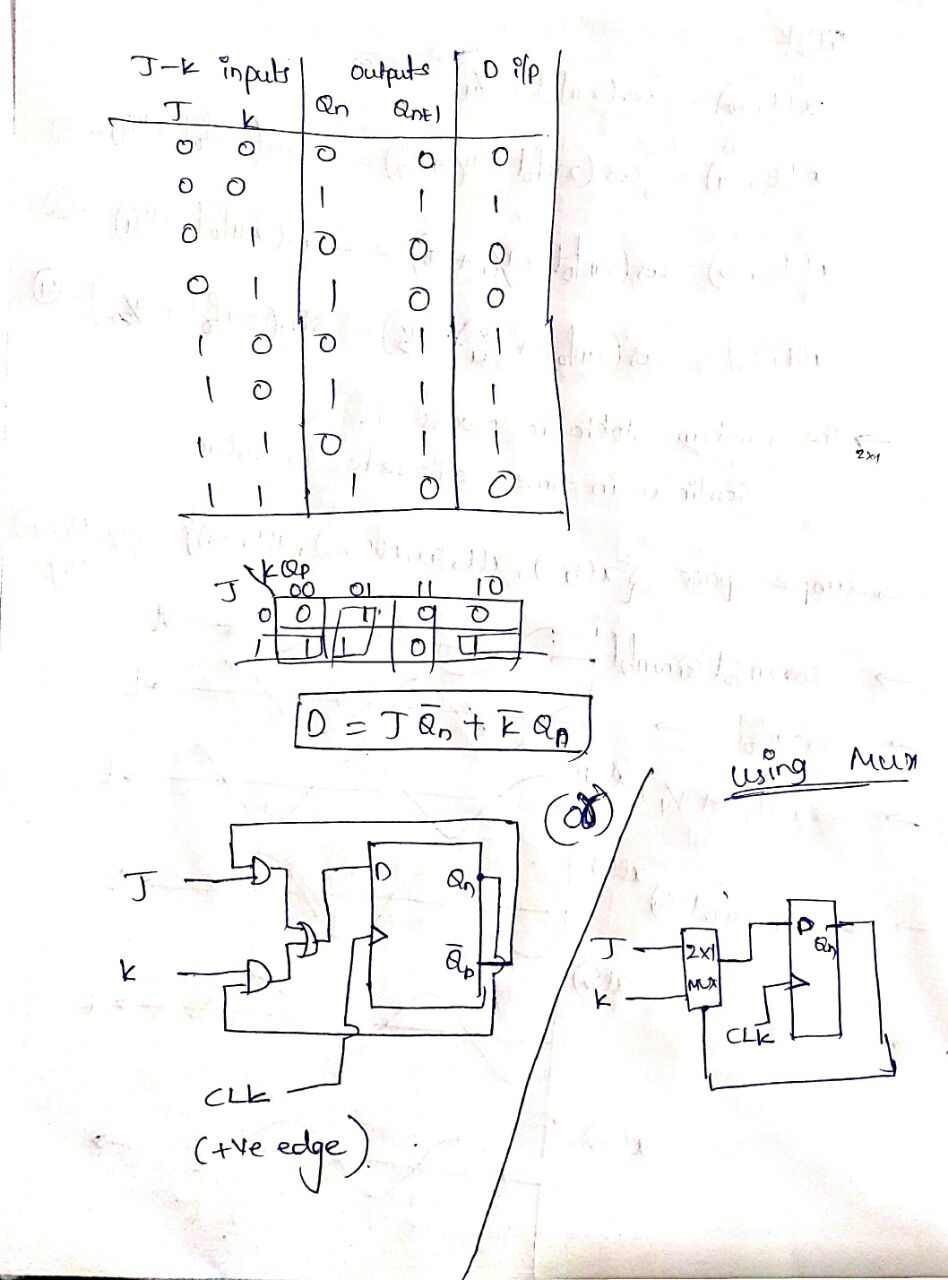 J-K inputs outputs D i/p
J K Qn Qn+1
0 0 0 0 0
0 0 1 1 1
0 1 0 0 0
0 1 1 0 0
1 0 0 1 1
1 0 1 1 1
1 1 0 1 1
1 1 1 0 0
2x1
J KQn
00 01 11 10
0 0 1 0 0
1 1 1 0 1
D = J Q̅n + K̅ Qn
(or)
using Mux
J
K
D Qn
Q̅n
CLK
(+ve edge).
J
K
2x1
MUX
D
Qn
CLK